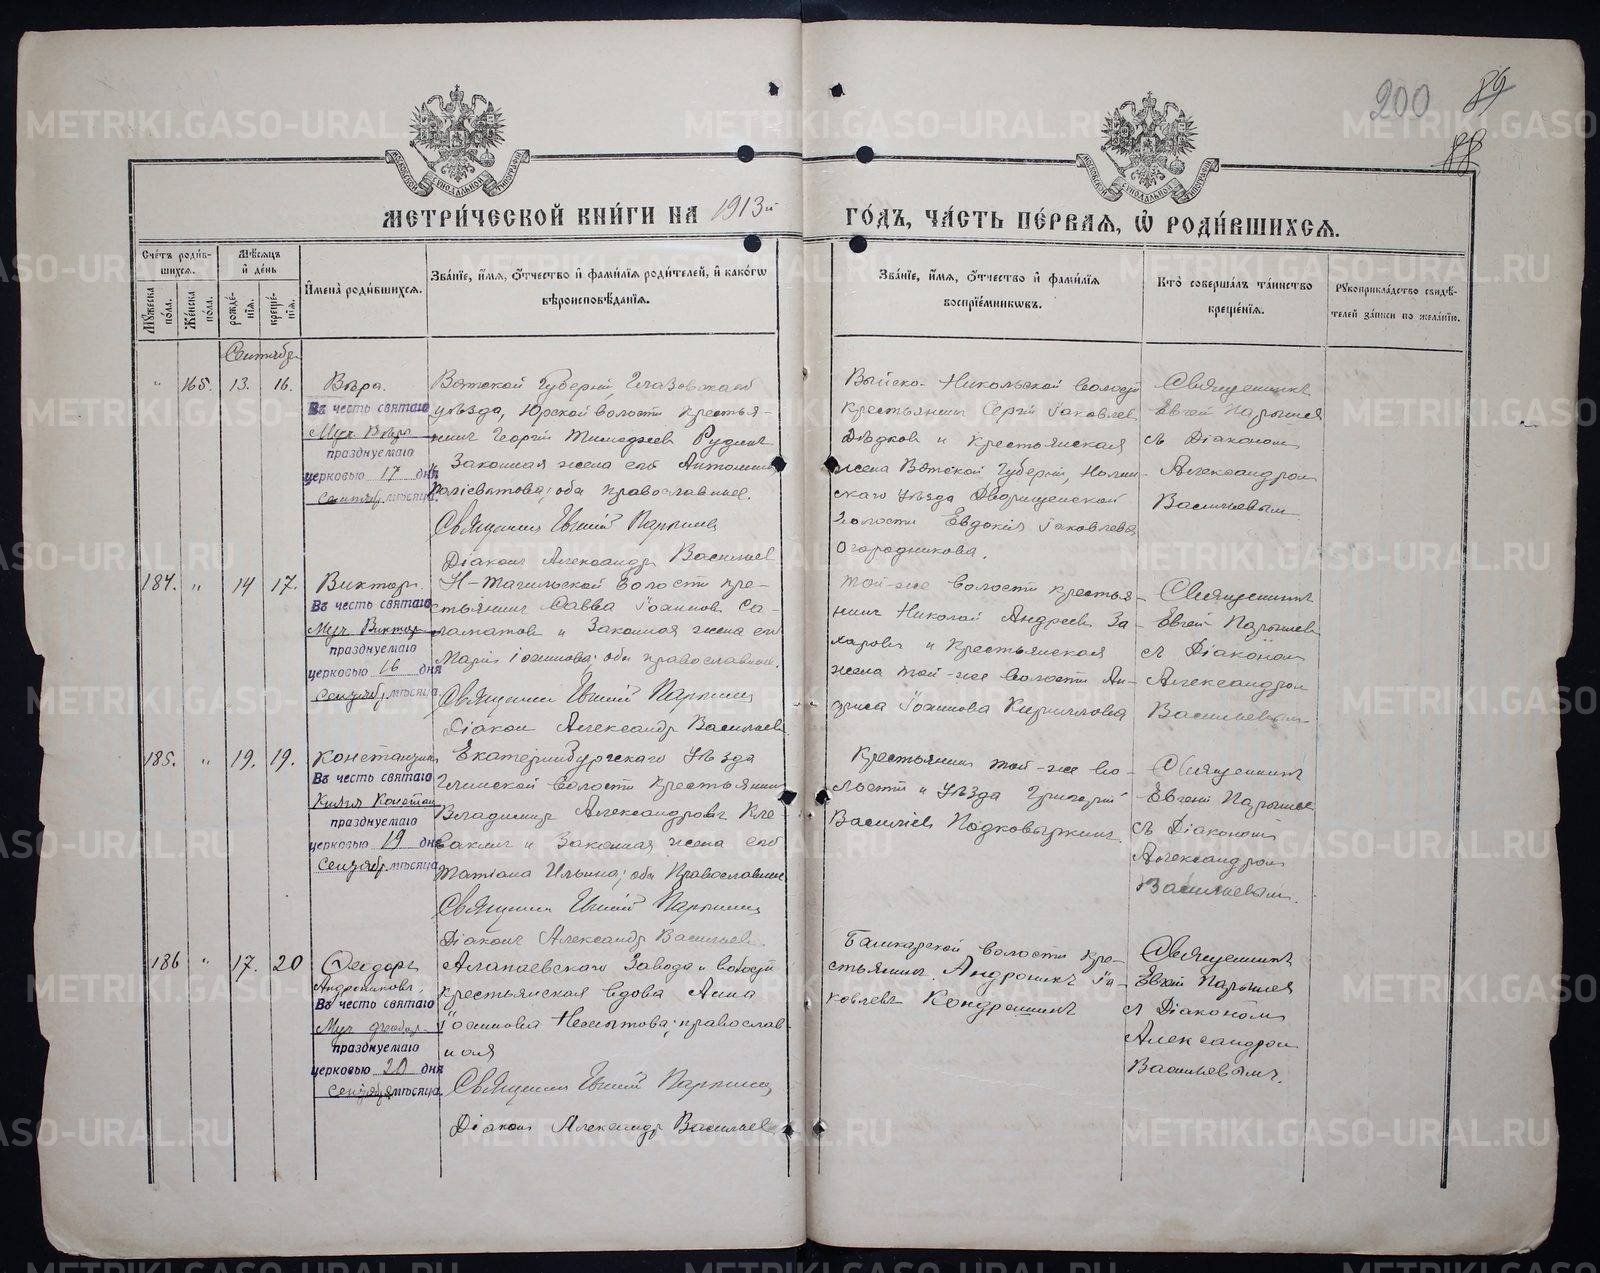 200 89
88
МОСКОВСКОЙ СУНОДАЛЬНОЙ ТИПОГРАФІИ
МОСКОВСКОЙ СУНОДАЛЬНОЙ ТИПОГРАФІИ
МЕТРИ́ЧЕСКОЙ КНИ́ГИ НА 1913й
ГО́ДЪ, ЧА́СТЬ ПЕ́РВАѦ, Ѡ҆ РОДИ́ВШИХСѦ.
Сче́тъ роди́в-
шихсѧ.
Мꙋ́жеска по́ла.
Же́нска по́ла.
Мѣ́сѧцъ и҆ де́нь
рожде́-
нїѧ.
креще́-
нїѧ.
И҆мена̀ роди́вшихсѧ.
Зва́нїе, и҆́мѧ, ѻ҆́тчество и҆ фами́лїѧ роди́телей, и҆ како́гѡ
вѣроисповѣ́данїѧ.
Зва́нїе, и҆́мѧ, ѻ҆́тчество и҆ фами́лїѧ
воспрїе́мникѡвъ.
Кто̀ соверша́лъ та́инство
креще́нїѧ.
Рꙋкоприкла́дство свидѣ́-
телей за́писи по жела́нїю.
Сентябр
" 165. 13. 16.
Вѣра.
Въ честь святаго
Муч. Вѣры
празднуемаго
церковью 17 дня
сентяб. мѣсяца.
Вятской Губерніи, Глазовскаго
уѣзда, Юрской волости крестья-
нинъ Георгій Тимофеев Рудинъ
Законная жена его Антонина
; оба православные.
Священник Евгеній Парышев
Діаконъ Александр Васильев
Выйско-Никольской волости
крестьянин Сергій Іаковлев
Дѣдков и крестьянская
жена Вятской Губерніи, Нолин-
скаго уѣзда Дворищенской
волости Евдокія Іаковлева
Огородникова.
Священникъ
Евгеній Парышев
съ Діаконом
Александром
Васильевым.
184. " 14 17.
Викторъ
Въ честь святаго
Муч. Виктор
празднуемаго
церковью 16 дня
сентябр. мѣсяца.
Н-Тагильской волости кре-
стьянин Савва Іоаннов Са-
ламатов и Законная жена его
Марія Іоаннова; оба православные.
Священник Евгеній Парышев
Діакон Александр Васильев
Той-же волости крестья-
нинъ Николай Андреев За-
харовъ и крестьянская
жена той-же волости
Іоаннова Кириллова
Священникъ
Евгеній Парышев
съ Діаконом
Александром
Васильевым.
185. " 19. 19.
Константинъ
Въ честь святаго
Князя Констан
празднуемаго
церковью 19 дня
Сентябр. мѣсяца
Екатеринбургскаго уѣзда
волости крестьянин
Владиміръ Александровъ Кле-
вакин и Законная жена его
Татіана Ильина; оба Православные
Священник Евгеній Парышев
Діаконъ Александр Васильев
Крестьянин той-же во-
лости и уѣзда Григорій
Васильев Подковыркин.
Священникъ
Евгеній Парышев
съ Діаконом
Александром
Васильевым.
186 " 17. 20
Ѳеодоръ
Андрониковъ.
Въ честь святаго
Муч. Ѳеодор.
празднуемаго
церковью 20 дня
Сентября мѣсяца.
Алапаевскаго Завода и волости
крестьянская вдова Анна
Іоаннова ; православ-
ная
Священник Евгеній Парышев
Діакон Александр Васильев
Башкарской волости кре-
стьянин Андроникъ Іа-
ковлевъ Кондрашинъ
Священникъ
Евгеній Парышев
съ Діаконом
Александром
Васильевымъ.
METRIKI.GASO-URAL.RU